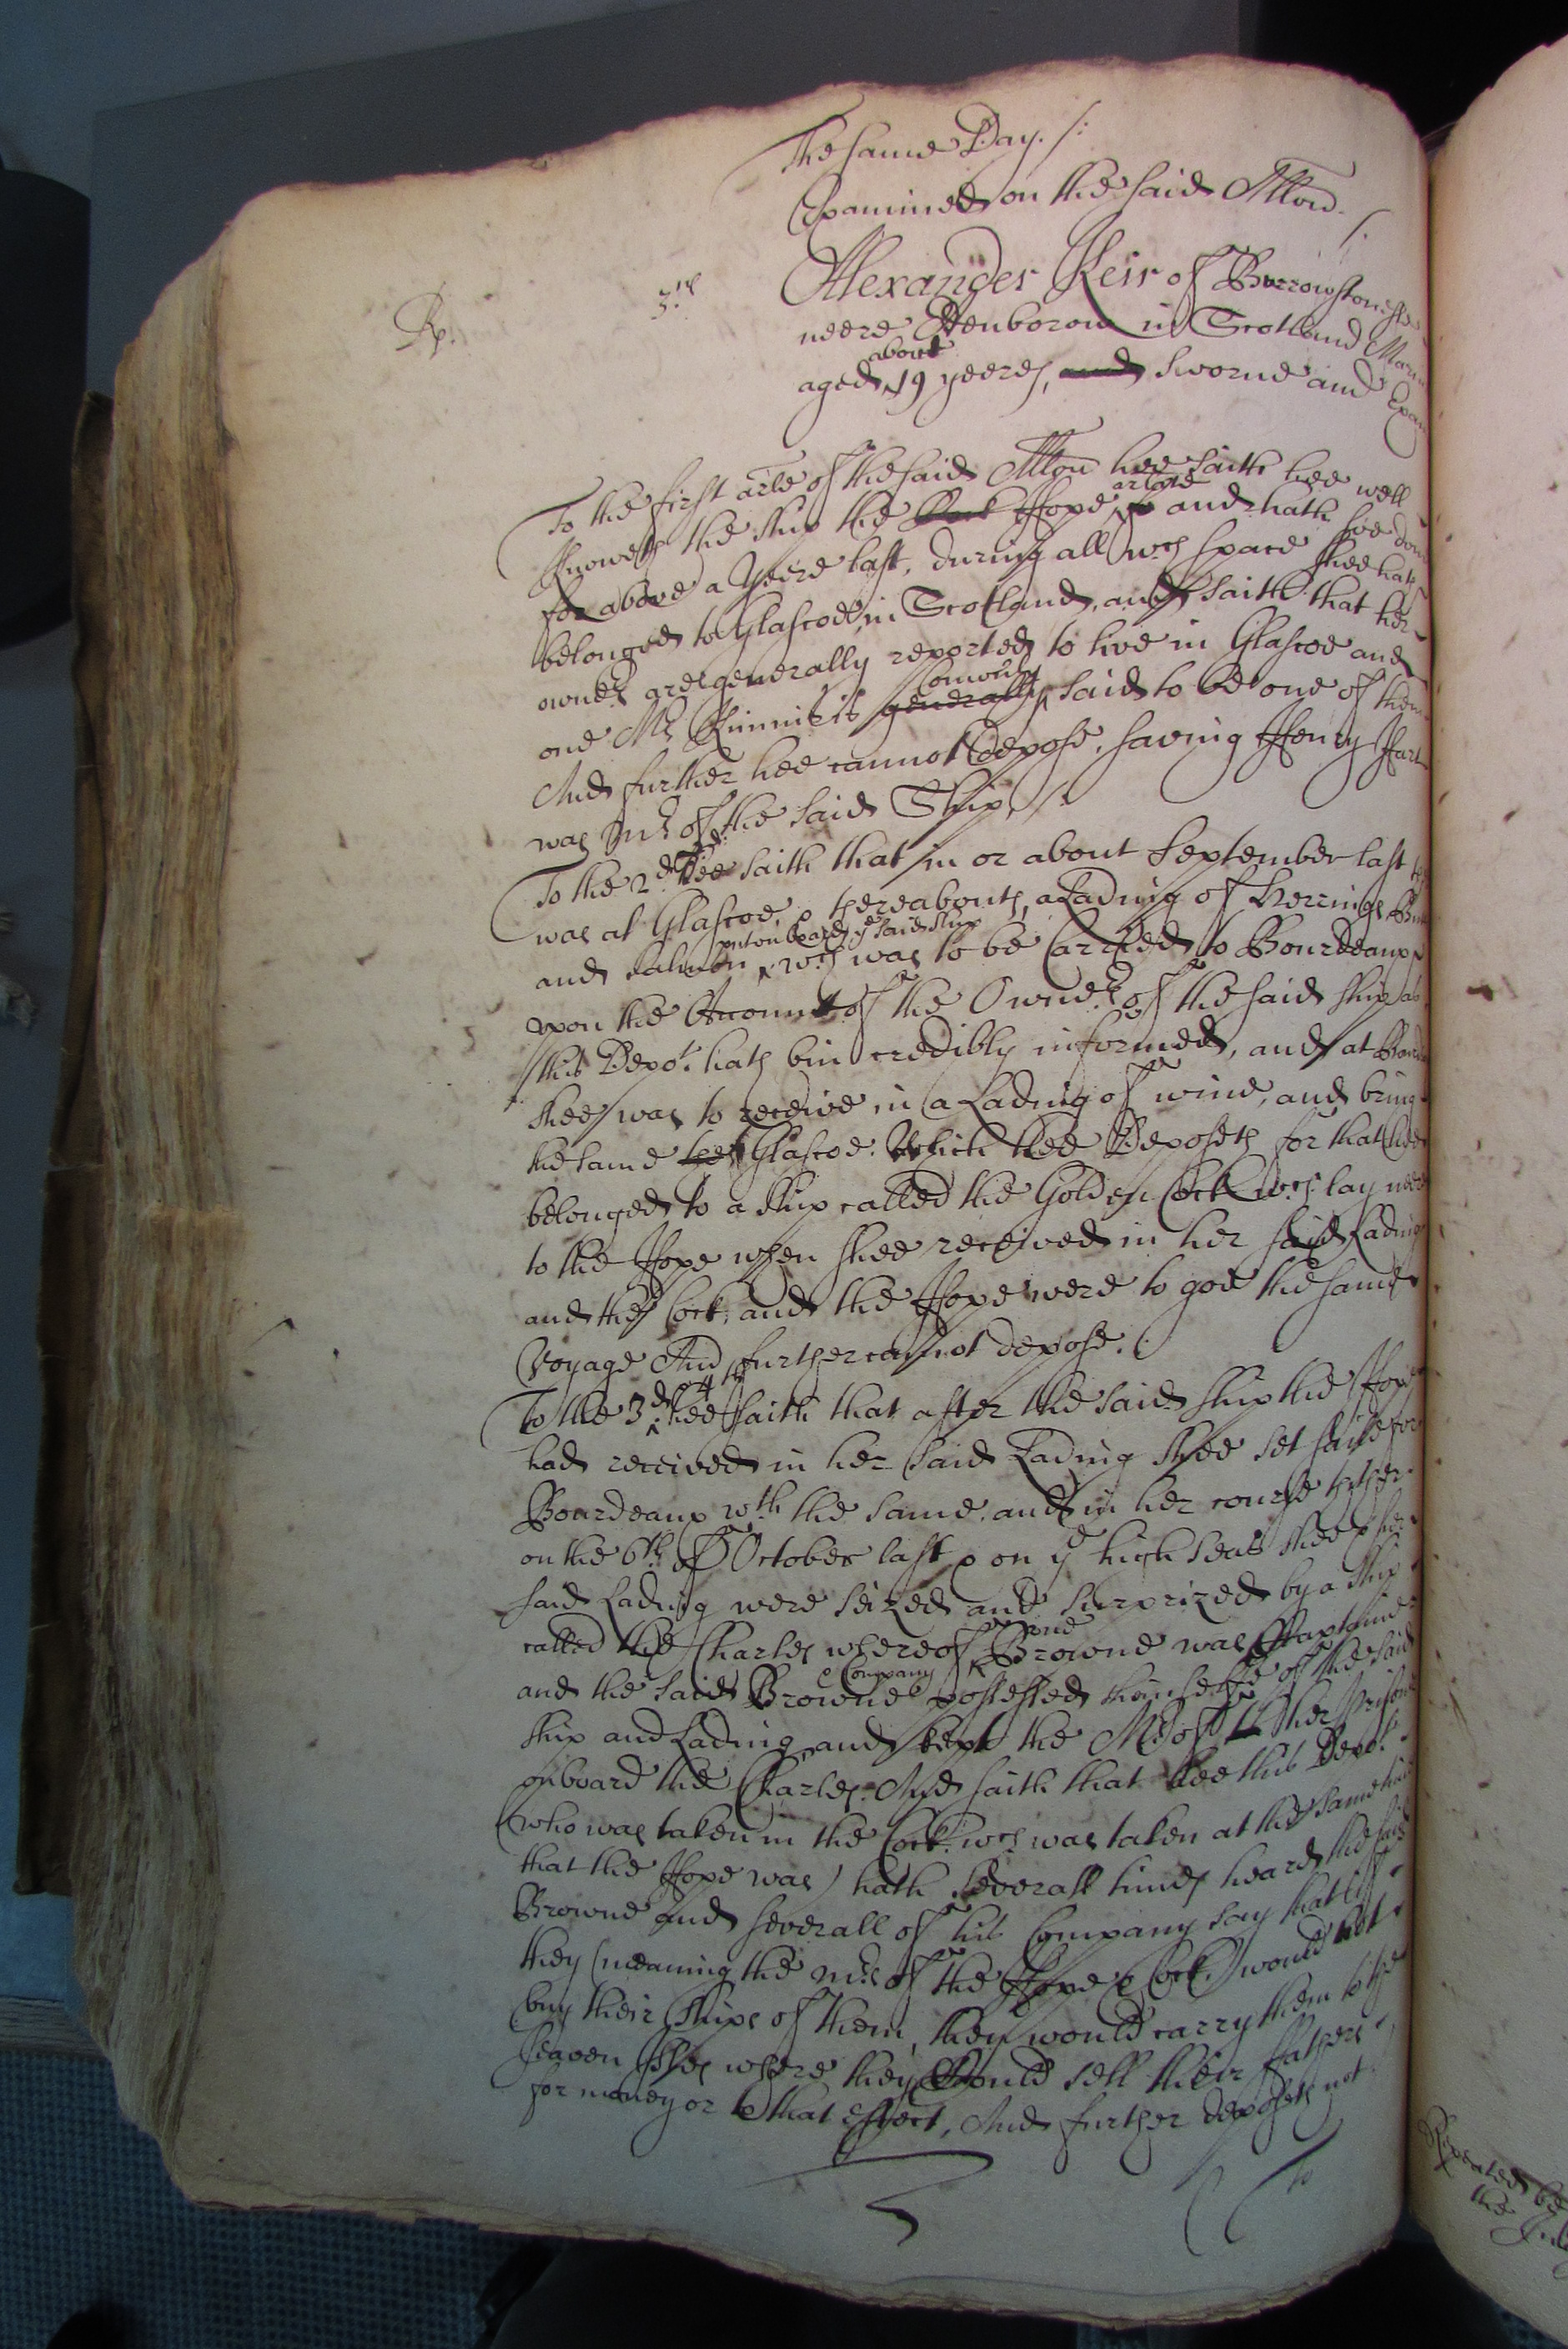 The same Day. /:
Examined on the said Allon. /.
Rp. 3.us Alexander Keir of Burrowstones
neere Edenborow in Scotland Marin
aged about 19 yeeres, and sworne and Exam
To the first arle of the said Allon hee saith hee well
knoweth the ship the Cock Hope arlate and hath soe don
for above a yeere last, during all wch space shee hath
belonged to Glascoe in Scotland, and saith that her
owners are generally reported to live in Glascoe and
one Mr Kinnis is generally comonly said to be one of them
And further hee cannot depose, saving Henry Hart
was Mr of the said Ship. /.
To the 2d. hee saith that in or about September last
was at Glascoe, or thereabouts, a Lading of Herrings
and salmon put on board ye said ship wch was to be carried to Bourdeaux
upon the Accomt of the Owners of the said ship as
this Depot. hath bin credibly informed, and at
shee was to receive in a Lading of wine, and bring
the same to Glascoe. Which hee Deposeth for that hee
belonged to a ship called the Golden Cock wch lay neere
to the Hope when shee received in her said Lading
and the Cock, and the Hope were to goe the same
Voyage And further cannot depose. /
To the 3d. & 4th hee saith that after the said ship the Hope
had received in her said Lading shee set saile for
Bourdeaux wth the same, and in her course thither
on the 6th of October last & on ye high seas shee & her
said Lading were seized and surprized by a ship
called the Charles whereof one Browne was Captaine
and the said Browne & Company possessed themselves of the said
ship and Lading, and kept the Mr of her Prisoner
onboard the Charles. And saith that hee this Depot.
(who was taken in the Cock, wch was taken at the same time
that the Hope was) hath severall times heard the said
Browne and severall of his Company say that if
they (meaning the Mrs of the Hope & Cock) would not
buy their ships of them, they would carry them to the
Seaven Isles where they would sell their fathers
for money or to that effect, And further deposeth not
To
Repeated before
the